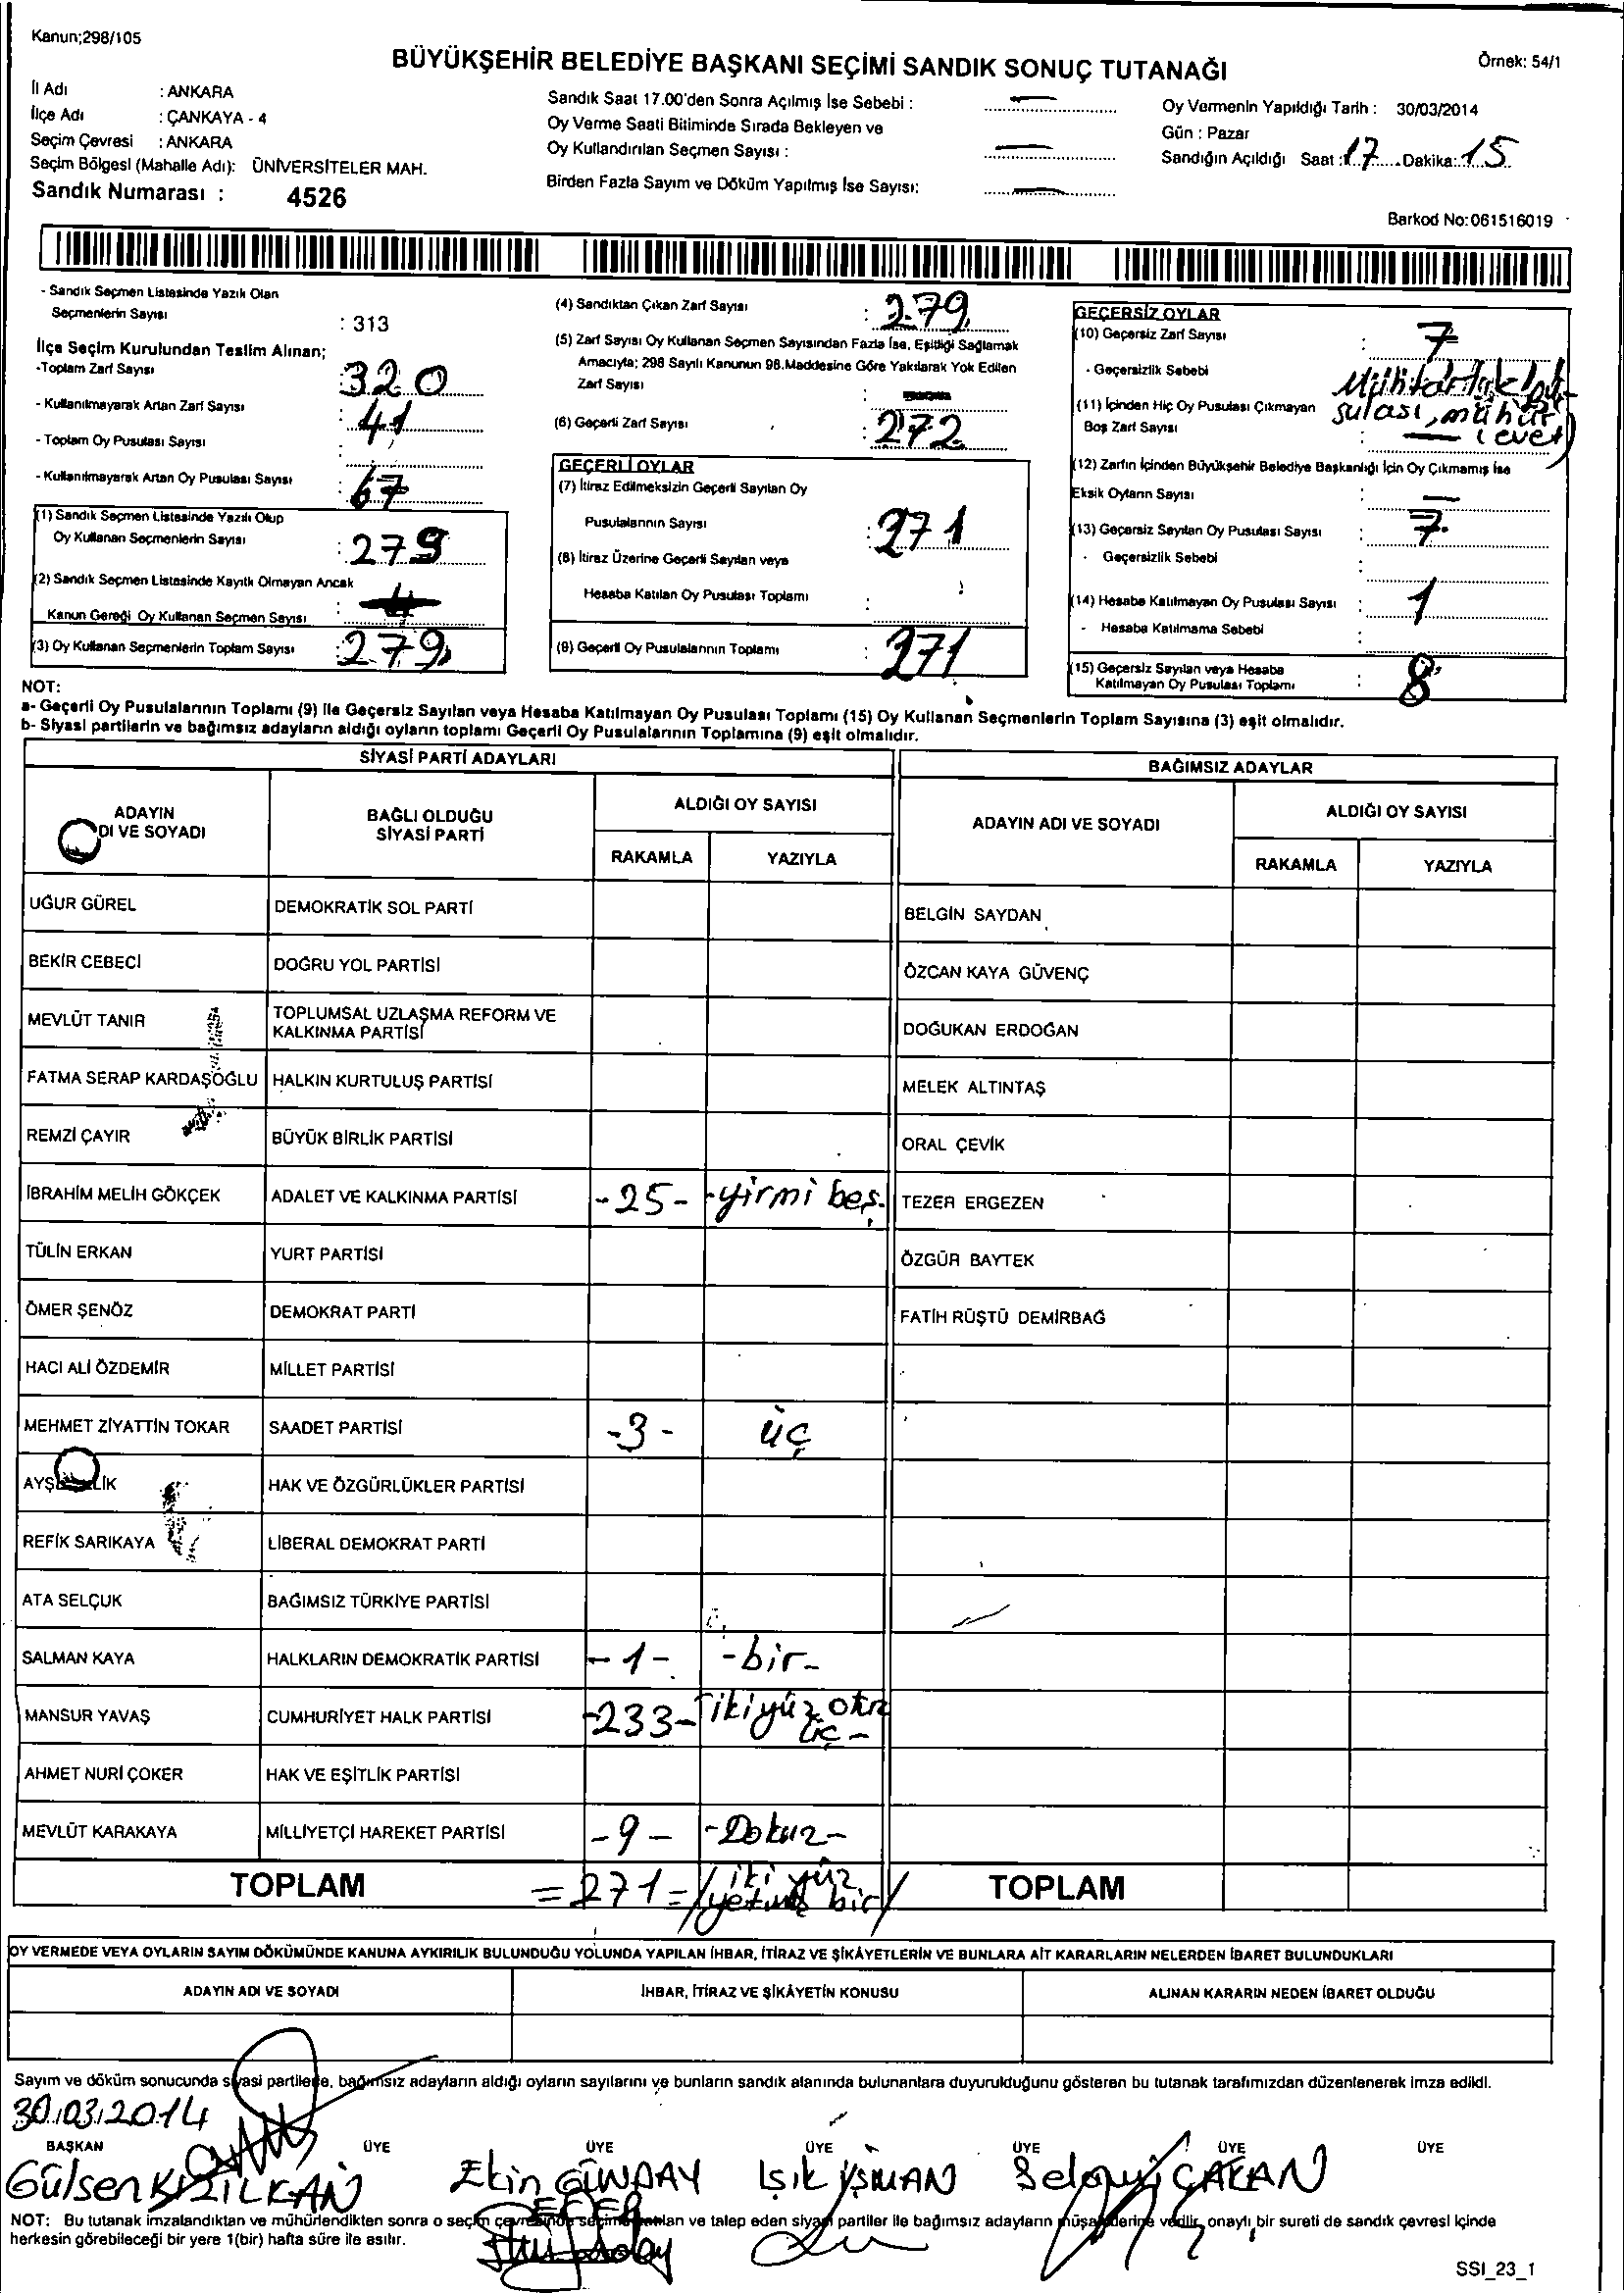 Kanun;298/105
BÜYÜKŞEHİR BELEDİYE BAŞKANI SEÇİMİ SANDIK SONUÇ TUTANAĞI
Örnek: 54/1
İl Adı : ANKARA
İlçe Adı : ÇANKAYA - 4
Seçim Çevresi : ANKARA
Seçim Bölgesi (Mahalle Adı): ÜNİVERSİTELER MAH.
Sandık Numarası : 4526
Sandık Saat 17.00'den Sonra Açılmış İse Sebebi : —
Oy Verme Saati Bitiminde Sırada Bekleyen ve
Oy Kullandırılan Seçmen Sayısı : —
Birden Fazla Sayım ve Döküm Yapılmış İse Sayısı: —
Oy Vermenin Yapıldığı Tarih : 30/03/2014
Gün : Pazar
Sandığın Açıldığı Saat : 17 Dakika: 15
Barkod No:061516019
- Sandık Seçmen Listesinde Yazılı Olan
Seçmenlerin Sayısı : 313
İlçe Seçim Kurulundan Teslim Alınan;
-Toplam Zarf Sayısı : 320
- Kullanılmayarak Artan Zarf Sayısı : 41
- Toplam Oy Pusulası Sayısı :
- Kullanılmayarak Artan Oy Pusulası Sayısı : 67
(1) Sandık Seçmen Listesinde Yazılı Olup
Oy Kullanan Seçmenlerin Sayısı : 279
(2) Sandık Seçmen Listesinde Kayıtlı Olmayan Ancak
Kanun Gereği Oy Kullanan Seçmen Sayısı :
(3) Oy Kullanan Seçmenlerin Toplam Sayısı : 279
(4) Sandıktan Çıkan Zarf Sayısı : 279
(5) Zarf Sayısı Oy Kullanan Seçmen Sayısından Fazla İse, Eşitliği Sağlamak
Amacıyla; 298 Sayılı Kanunun 98.Maddesine Göre Yakılarak Yok Edilen
Zarf Sayısı :
(6) Geçerli Zarf Sayısı : 272
GEÇERLİ OYLAR
(7) İtiraz Edilmeksizin Geçerli Sayılan Oy
Pusulalarının Sayısı : 271
(8) İtiraz Üzerine Geçerli Sayılan veya
Hesaba Katılan Oy Pusulası Toplamı :
(9) Geçerli Oy Pusulalarının Toplamı : 271
GEÇERSİZ OYLAR
(10) Geçersiz Zarf Sayısı : 7
- Geçersizlik Sebebi Muhtarlık pu-
sulası, mühür
(evet)
(11) İçinden Hiç Oy Pusulası Çıkmayan
Boş Zarf Sayısı : —
(12) Zarfın İçinden Büyükşehir Belediye Başkanlığı İçin Oy Çıkmamış İse
Eksik Oyların Sayısı : —
(13) Geçersiz Sayılan Oy Pusulası Sayısı : 7
- Geçersizlik Sebebi :
(14) Hesaba Katılmayan Oy Pusulası Sayısı : 1
- Hesaba Katılmama Sebebi :
(15) Geçersiz Sayılan veya Hesaba
Katılmayan Oy Pusulası Toplamı : 8
NOT:
a- Geçerli Oy Pusulalarının Toplamı (9) ile Geçersiz Sayılan veya Hesaba Katılmayan Oy Pusulası Toplamı (15) Oy Kullanan Seçmenlerin Toplam Sayısına (3) eşit olmalıdır.
b- Siyasi partilerin ve bağımsız adayların aldığı oyların toplamı Geçerli Oy Pusulalarının Toplamına (9) eşit olmalıdır.
SİYASİ PARTİ ADAYLARI
BAĞIMSIZ ADAYLAR
ADAYIN
DI VE SOYADI
BAĞLI OLDUĞU
SİYASİ PARTİ
ALDIĞI OY SAYISI
RAKAMLA YAZIYLA
ADAYIN ADI VE SOYADI
ALDIĞI OY SAYISI
RAKAMLA YAZIYLA
UĞUR GÜREL DEMOKRATİK SOL PARTİ BELGİN SAYDAN
BEKİR CEBECİ DOĞRU YOL PARTİSİ ÖZCAN KAYA GÜVENÇ
MEVLÜT TANIR TOPLUMSAL UZLAŞMA REFORM VE
KALKINMA PARTİSİ DOĞUKAN ERDOĞAN
FATMA SERAP KARDAŞOĞLU HALKIN KURTULUŞ PARTİSİ MELEK ALTINTAŞ
REMZİ ÇAYIR BÜYÜK BİRLİK PARTİSİ ORAL ÇEVİK
İBRAHİM MELİH GÖKÇEK ADALET VE KALKINMA PARTİSİ -25- -yirmi beş- TEZER ERGEZEN
TÜLİN ERKAN YURT PARTİSİ ÖZGÜR BAYTEK
ÖMER ŞENÖZ DEMOKRAT PARTİ FATİH RÜŞTÜ DEMİRBAĞ
HACI ALİ ÖZDEMİR MİLLET PARTİSİ
MEHMET ZİYATTİN TOKAR SAADET PARTİSİ -3- üç
AYŞ LİK HAK VE ÖZGÜRLÜKLER PARTİSİ
REFİK SARIKAYA LİBERAL DEMOKRAT PARTİ
ATA SELÇUK BAĞIMSIZ TÜRKİYE PARTİSİ
SALMAN KAYA HALKLARIN DEMOKRATİK PARTİSİ -1- -bir-
MANSUR YAVAŞ CUMHURİYET HALK PARTİSİ -233- -ikiyüz otuz
üç-
AHMET NURİ ÇOKER HAK VE EŞİTLİK PARTİSİ
MEVLÜT KARAKAYA MİLLİYETÇİ HAREKET PARTİSİ -9- -Dokuz-
TOPLAM =271= /iki yüz
yetmiş bir/ TOPLAM
OY VERMEDE VEYA OYLARIN SAYIM DÖKÜMÜNDE KANUNA AYKIRILIK BULUNDUĞU YOLUNDA YAPILAN İHBAR, İTİRAZ VE ŞİKÂYETLERİN VE BUNLARA AİT KARARLARIN NELERDEN İBARET BULUNDUKLARI
ADAYIN ADI VE SOYADI İHBAR, İTİRAZ VE ŞİKÂYETİN KONUSU ALINAN KARARIN NEDEN İBARET OLDUĞU
Sayım ve döküm sonucunda siyasi partilerle, bağımsız adayların aldığı oyların sayılarını ve bunların sandık alanında bulunanlara duyurulduğunu gösteren bu tutanak tarafımızdan düzenlenerek imza edildi.
30/03/2014
BAŞKAN ÜYE ÜYE ÜYE ÜYE ÜYE ÜYE
Gülsen KIZILKAN Ekin GÜNDAY Işık IŞMAN Selami ÇAKAN
EFER
NOT: Bu tutanak imzalandıktan ve mühürlendikten sonra o seçim çevresinde seçime katılan ve talep eden siyasi partiler ile bağımsız adayların müşahitlerine verilir, onaylı bir sureti de sandık çevresi içinde
herkesin görebileceği bir yere 1(bir) hafta süre ile asılır.
SSI_23_1